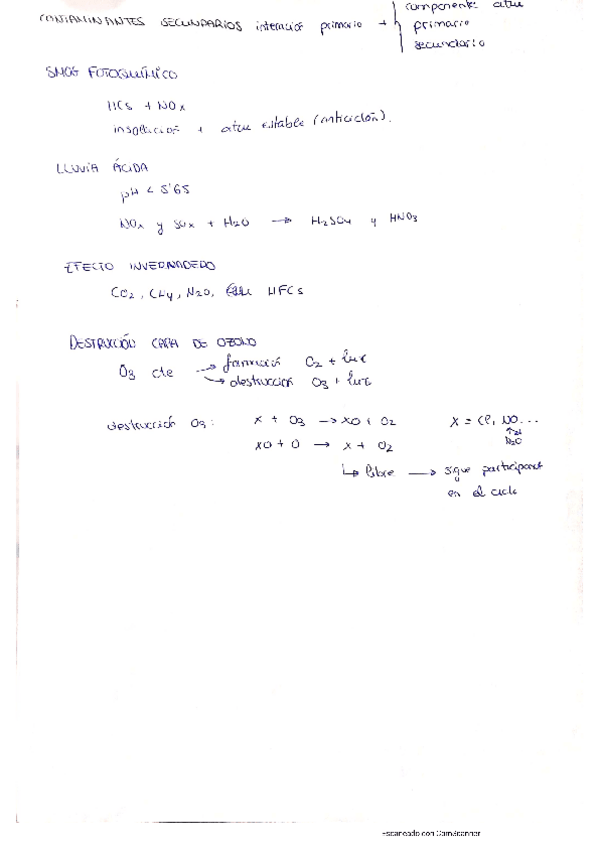 componente atm
CONTAMINANTES SECUNDARIOS interacción primario + { primario
secundario
SMOG FOTOQUÍMICO
HCs + NOx
insolación + atm estable (anticiclón).
LLUVIA ÁCIDA
pH < 5'65
NOx y SOx + H2O → H2SO4 y HNO3
EFECTO INVERNADERO
CO2, CH4, N2O, HFCs
DESTRUCCIÓN CAPA DE OZONO
O3 cte → formación O2 + luz
→ destrucción O3 + luz
destrucción O3: X + O3 → XO + O2 X = Cl, NO...
N2O
XO + O → X + O2
↳ libre → sigue participant
en el ciclo
Escaneado con CamScanner